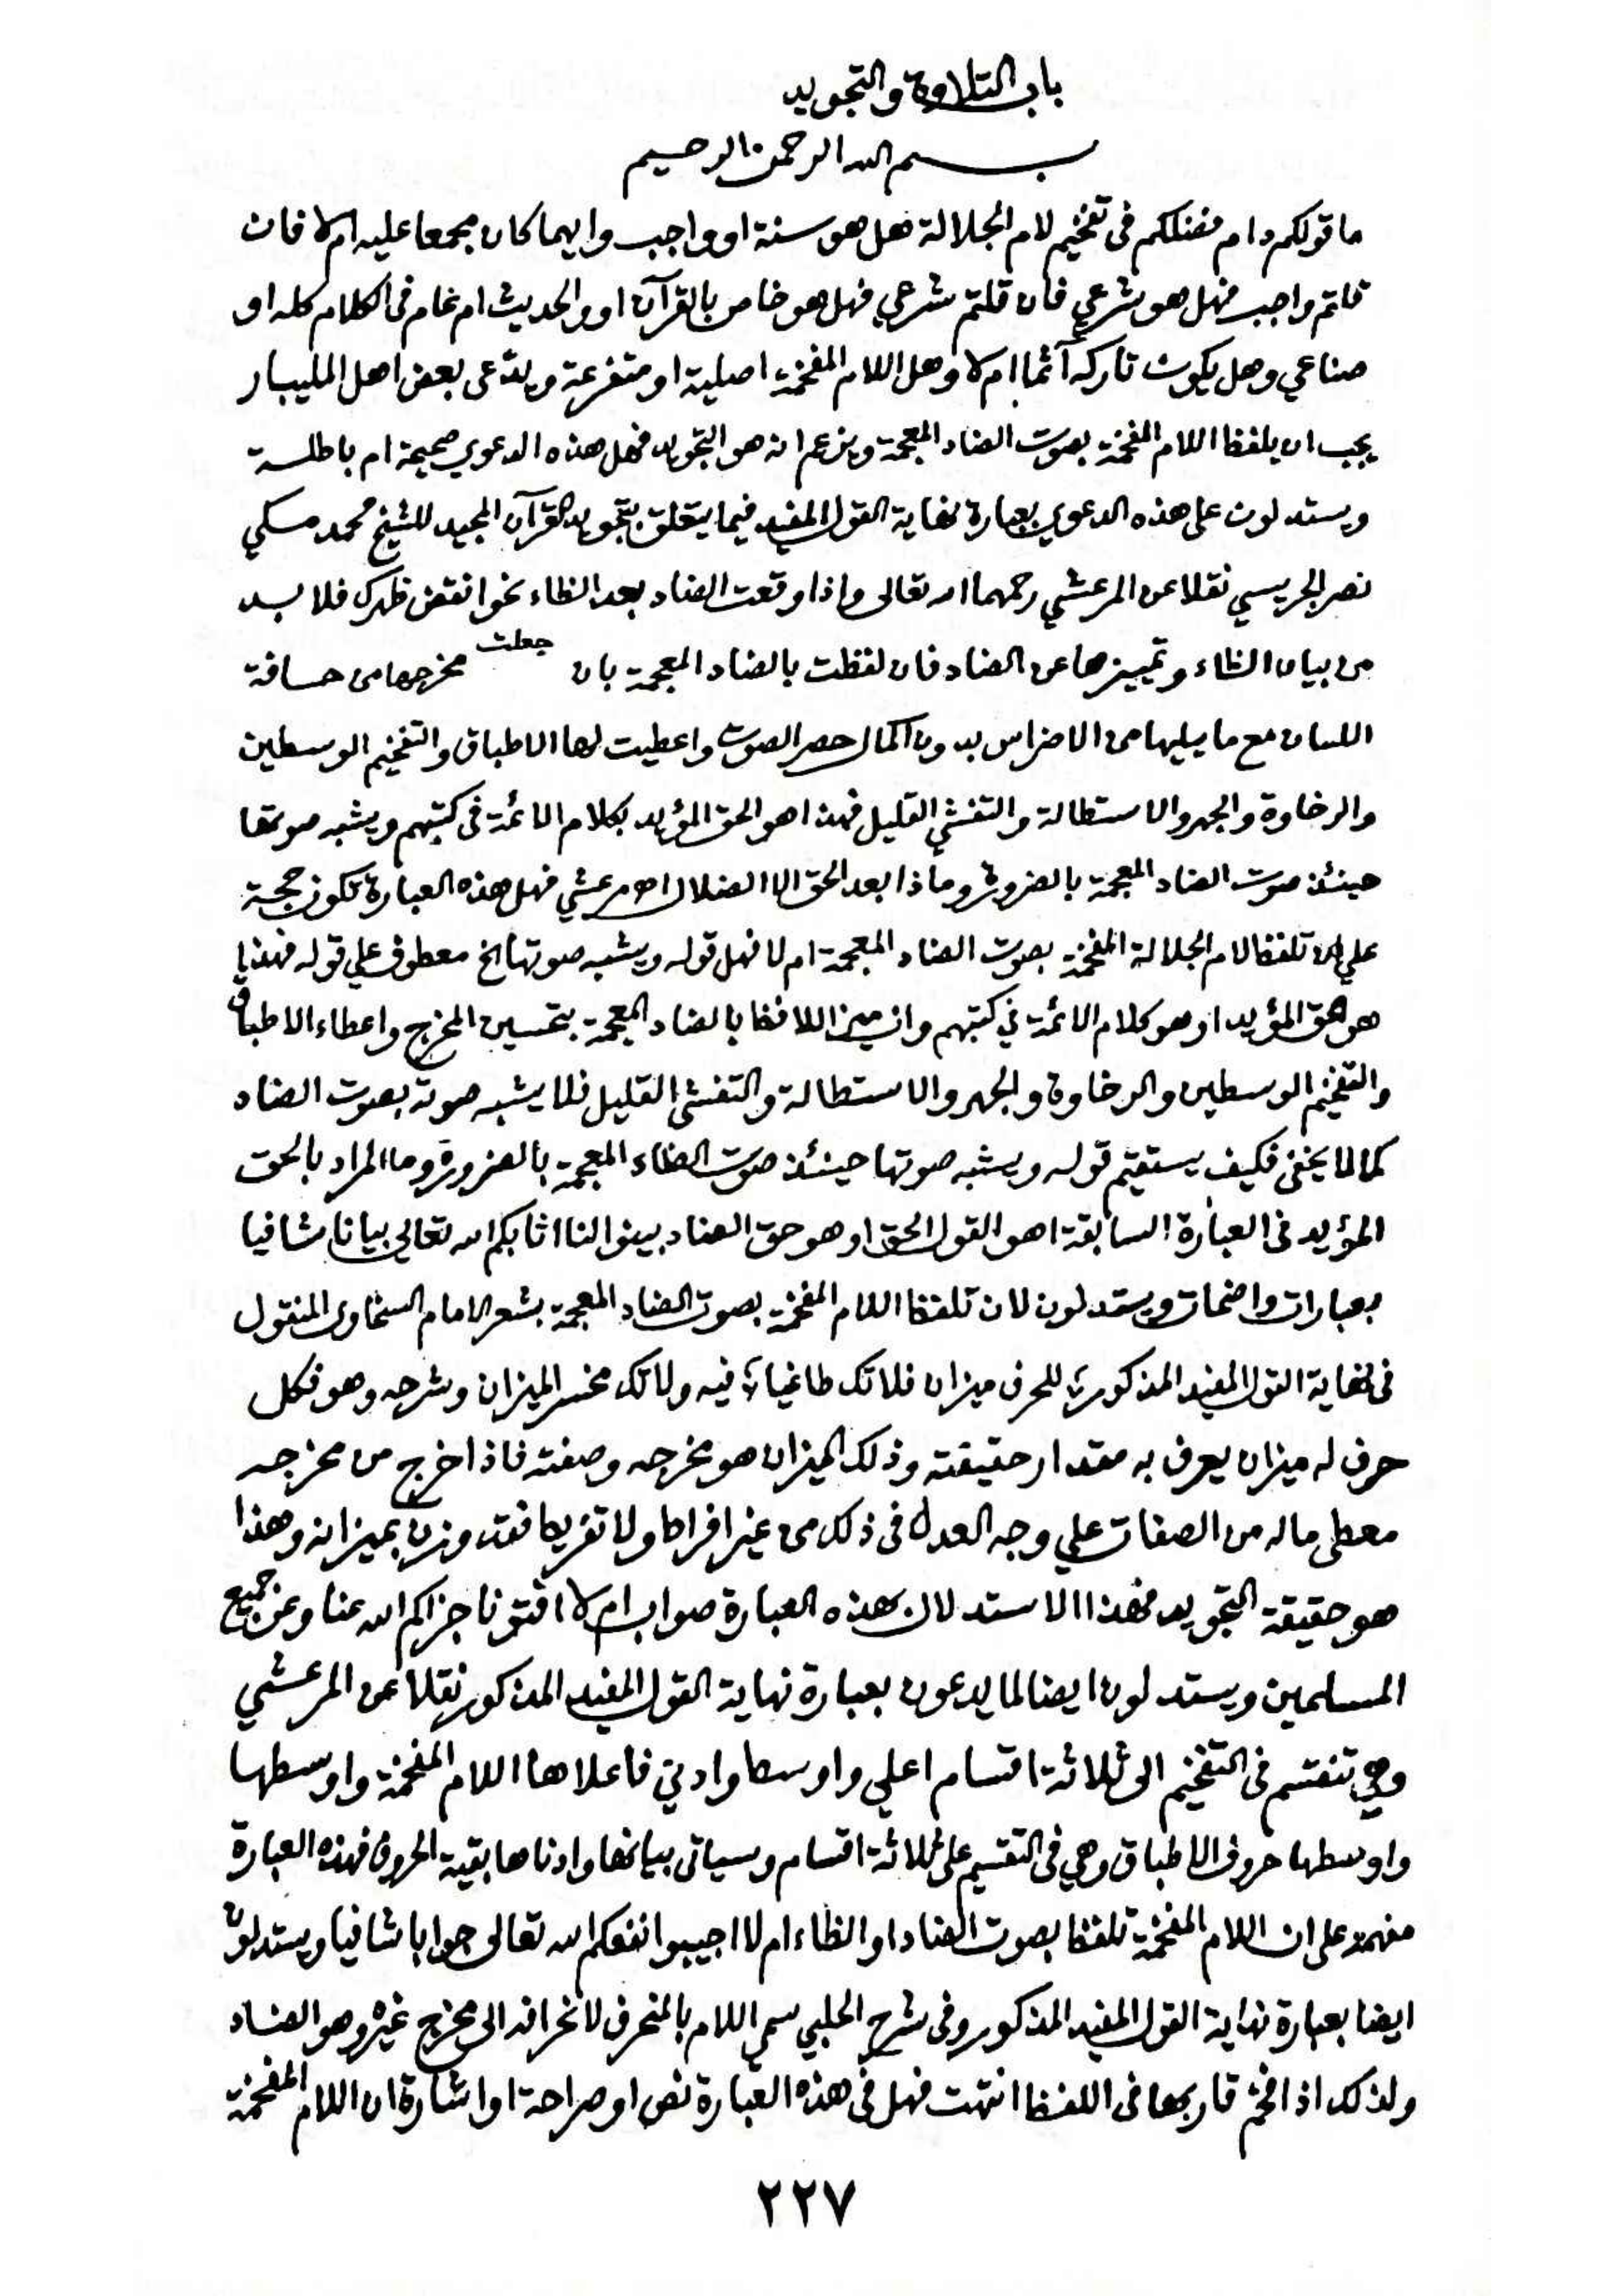 باب التلاوة والتجويد
بسم الله الرحمن الرحيم
ما قولكم دام فضلكم فى تفخيم لام الجلالة هل هو سنة او واجب وايهما كان مجمعا عليه ام لا فان
قلتم واجب فهل هو شرعي فان قلتم شرعي فهل هو خاص بالقرآن او والحديث ام عام فى الكلام كله او
صناعي وهل يكون تاركه آثما ام لا وهل اللام المفخمة اصلية او متفرعة ويدّعى بعض اهل المليبار
يجب ان يلفظ اللام المفخمة بصوت الضاد المعجمة ويزعم انه هو التجويد فهل هذه الدعوي صحيحة ام باطلة
ويستدلون على هذه الدعوي بعبارة نهاية القول المفيد فيما يتعلق بتجويد القرآن المجيد للشيخ محمد مكي
نصر الجريسي نقلا عن المرعشي رحمهما الله تعالى واذا وقعت الضاد بعد الظاء نحو انقض ظهرك فلا بد
من بيان الظاء وتمييزها عن الضاد فان لفظت بالضاد المعجمة بان جعلت مخرجها من حافة
اللسان مع ما يليها من الاضراس بدون اكمال حصر الصوت واعطيت لها الاطباق والتفخيم الوسطين
والرخاوة والجهر والاستطالة والتفشي القليل فهذا هو الحق المؤيد بكلام الائمة فى كتبهم ويشبه صوتها
حينئذ صوت الضاد المعجمة بالضرورة وماذا بعد الحق الا الضلال اه مرعشي فهل هذه العبارة تكون حجة
علي تلفظ لام الجلالة المفخمة بصوت الضاد المعجمة ام لا فهل قوله ويشبه صوتها الخ معطوف علي قوله فهذا
هو الحق المؤيد او هو كلام الائمة في كتبهم وان ميز اللافظ بالضاد المعجمة بتحسين المخرج واعطاء الاطباق
والتفخيم الوسطين والرخاوة والجهر والاستطالة والتفشى القليل فلا يشبه صوته بصوت الضاد
كما لا يخفى فكيف يستقيم قوله ويشبه صوتها حينئذ صوت الظاء المعجمة بالضرورة وما المراد بالحق
المؤيد فى العبارة السابقة اهو القول الحق او هو حق الضاد بينوا لنا اثابكم الله تعالى بيانا شافيا
بعبارات واضحات ويستدلون لان تلفظ اللام المفخمة بصوت الضاد المعجمة بشعر الامام السخاوى المنقول
فى نهاية القول المفيد المذكور للحرف ميزان فلا تك طاغيا فيه ولا تك مخسر الميزان وشرحه وهو فكل
حرف له ميزان يعرف به مقدار حقيقته وذلك الميزان هو مخرجه وصفته فاذا خرج من مخرجه
معطى ماله من الصفات علي وجه العدل فى ذلك من غير افراط ولا تفريط فقد وزن بميزانه وهذا
هو حقيقة التجويد فهذا الاستدلال بهذه العبارة صواب ام لا افتونا جزاكم الله عنا وعن جميع
المسلمين ويستدلون ايضا لما يدعون بعبارة نهاية القول المفيد المذكور نقلا عن المرعشي
وهي تنقسم فى التفخيم الى ثلاثة اقسام اعلي واوسط وادني فاعلاها اللام المفخمة واوسطها
واوسطها حروف الاطباق وهي فى التقسيم على ثلاثة اقسام وسياتى بيانها وادناها بقية الحروف فهذه العبارة
مفهمة على ان اللام المفخمة تلفظ بصوت الضاد او الظاء ام لا اجيبوا نفعكم الله تعالى جوابا شافيا ويستدلون
ايضا بعبارة نهاية القول المفيد المذكور وفى شرح الحلبي سمي اللام بالمنحرف لانحرافه الى مخرج غيره وهو الضاد
ولذلك اذا فخم قاربها فى اللفظ انتهت فهل فى هذه العبارة نص او صراحة او اشارة ان اللام المفخمة
٢٢٧